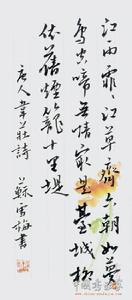 江雨霏霏江草齊六朝如夢
鳥空啼無情最是臺城柳
依舊煙籠十里堤
唐人韋莊詩 蘇雪梅書